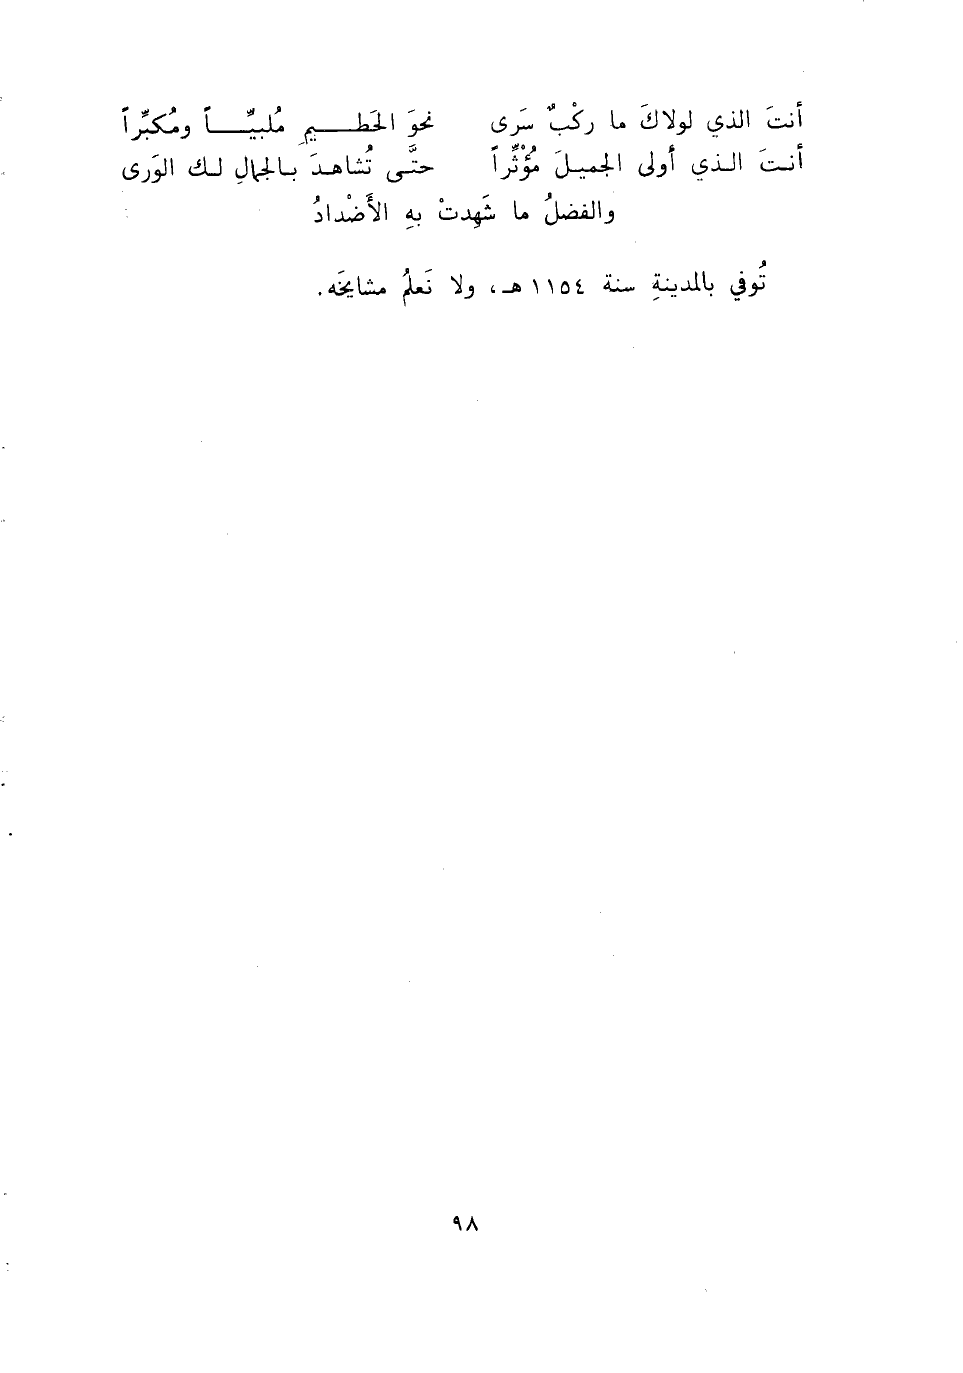 أنتَ الذي لولاكَ ما ركْبٌ سَرى نحوَ الحَطيمِ مُلبيِّاً ومُكبِّراً
أنتَ الذي أولى الجميلَ مُؤْثِّراً حتَّى تُشاهدَ بالجمالِ لك الوَرى
والفضلُ ما شَهِدتْ بهِ الأَضْدادُ
تُوفي بالمدينةِ سنة ١١٥٤ هـ، ولا نَعلمُ مشايخَه.
٩٨